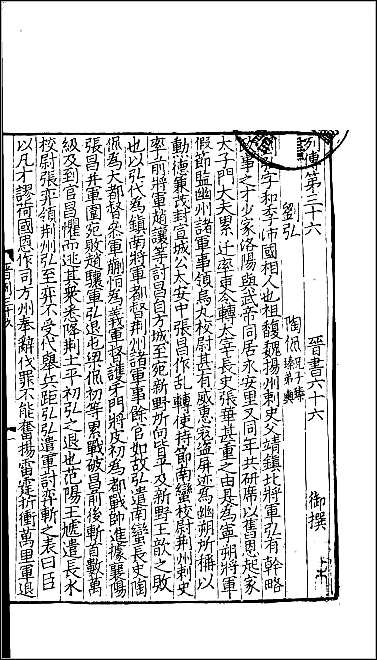 列傳第三十六　晉書六十六
御撰
劉弘　陶侃兄子臻　臻弟輿
弘字和季沛國相人也祖馥魏揚州刺史父靖鎮北將軍弘有幹略
政事之才少家洛陽與武帝同居永安里又同年共研席以舊恩起家
太子門大夫累迁率更令轉太宰長史張華甚重之由是為寧朔將軍
假節監幽州諸軍事領烏丸校尉甚有威惠寇盗屏迹為幽朔所稱以
勳德兼茂封宣城公太安中張昌作乱轉使持節南蠻校尉荆州刺史
率前將軍趙驤等討昌自方城至宛新野所向皆平及新野王歆之敗
也以弘代為鎮南將軍都督荆州諸軍事餘官如故弘遣南蠻長史陶
侃為大都督參軍蒯恒為義軍督護牙門將皮初為都戰帥進據襄陽
張昌并軍圍宛敗趙驤軍弘退屯梁侃初等累戰破昌前後斬首數萬
級及到官昌懼而逃其衆悉降荆土平初弘之退也范陽王虓遣長水
校尉張弈領荆州弘至弈不受代舉兵距弘弘遣軍討弈斬之表曰臣
以凡才謬荷國恩作司方州奉辭伐罪不能奮揚雷霆折衝萬里軍退